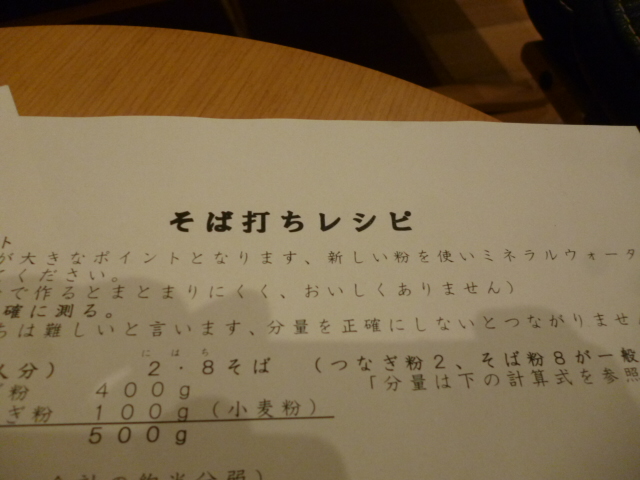 そば打ちレシピ
ト
が大きなポイントとなります、新しい粉を使いミネラルウォータ
てください。
で作るとまとまりにくく、おいしくありません）
確に測る。
ちは難しいと言います、分量を正確にしないとつながりません
にはち
人分） ２・８そば （つなぎ粉２、そば粉８が一般
粉 ４００ｇ 「分量は下の計算式を参照
ぎ粉 １００ｇ（小麦粉）
５００ｇ